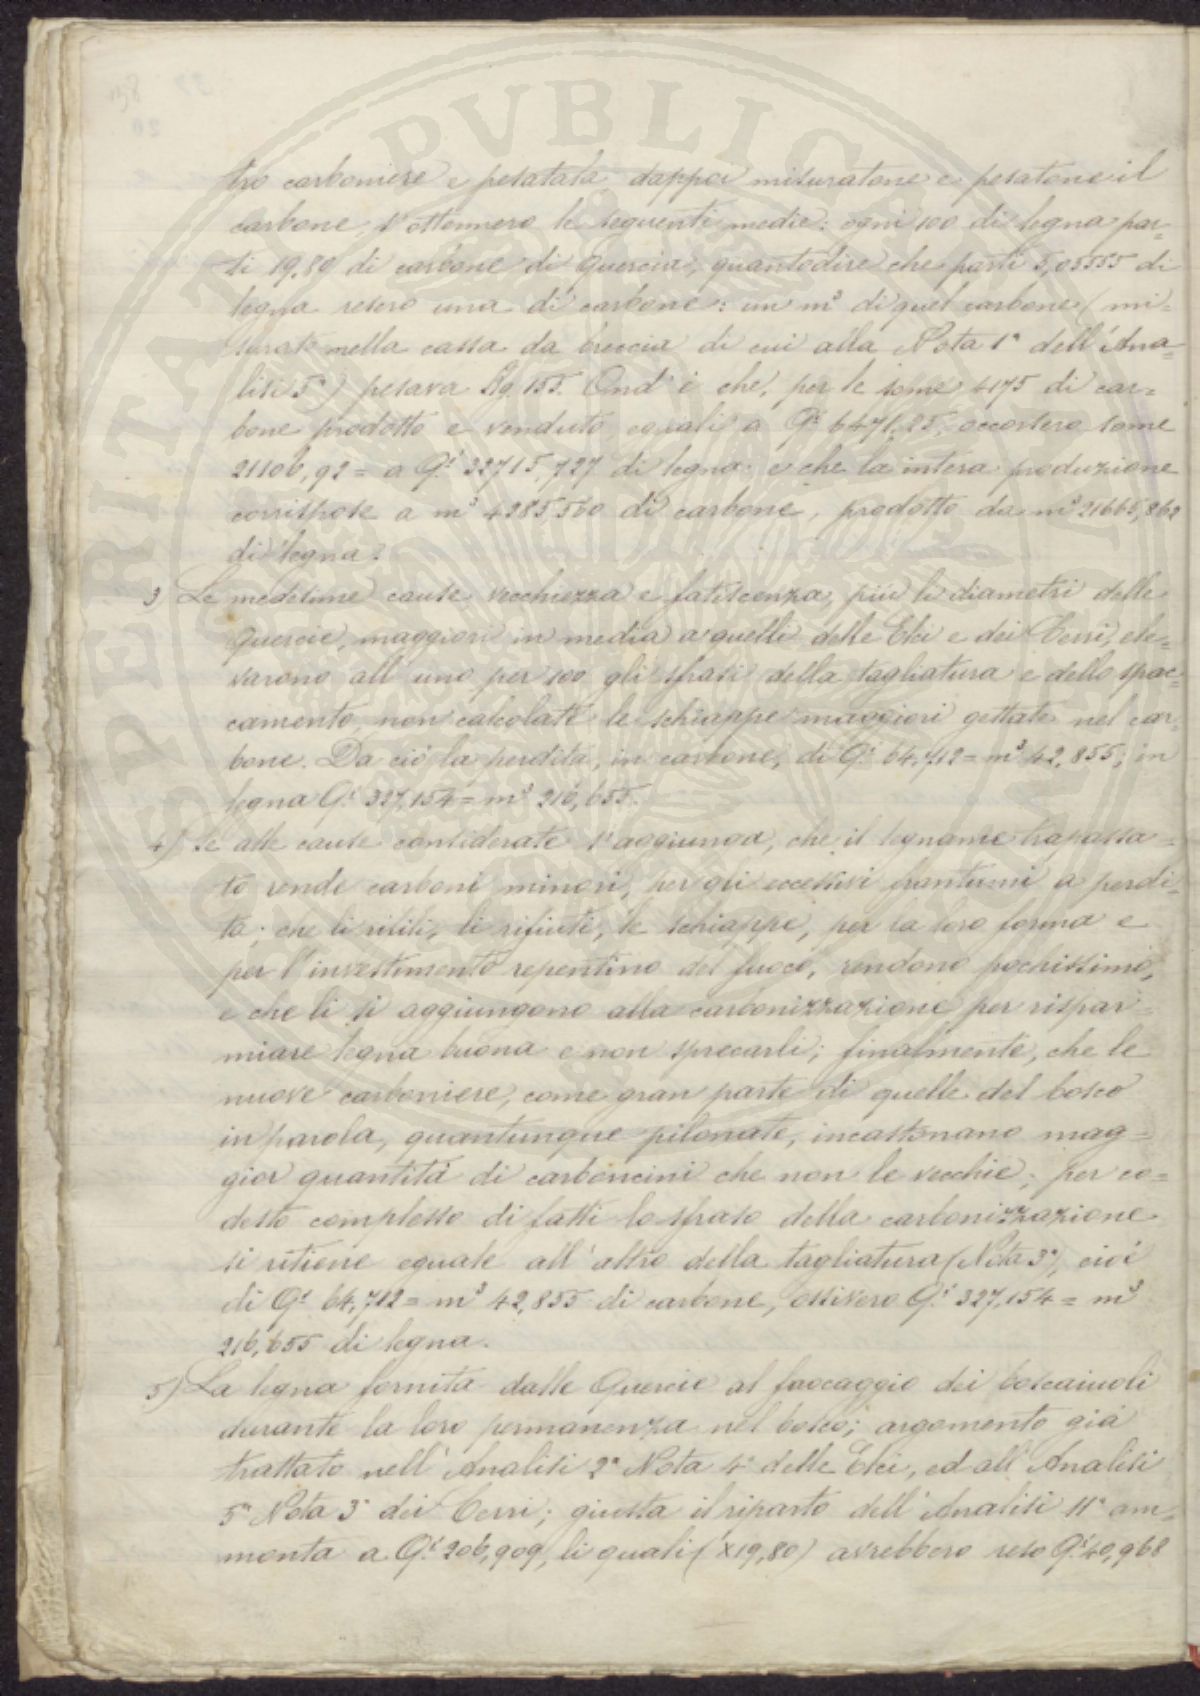 tro carboniere e pesatata, dappoi misuratone e pesatone il
carbone, s'ottennero le seguenti medie: ogni 100 di legna par-
ti 19,80 di carbone di Quercia, quantodire che parti 5,05555 di
legna resero una di carbone: un m³ di quel carbone (mi-
surato nella cassa da breccia di cui alla Nota 1ª dell'Ana-
lisi 5ª) pesava Kg. 155. Ond'è che, per le some 4175 di car-
bone prodotto e venduto eguali a Q.li 6471,25, occorsero some
21106,92 = a Q.li 32715,727 di legna: e che la intera produzione
corrispose a m³ 4285,560 di carbone, prodotto da m³ 21665,862
di legna.
3) Le medesime cause vecchiezza e fatiscenza, più li diametri delle
Quercie, maggiori in media a quelli delle Elci e dei Cerri, ele-
varono all'uno per 100 gli sfrasi della tagliatura e dello spac-
camento, non calcolate le schiappe maggiori gettate nel car-
bone. Da ciò la perdita, in carbone, di Q.li 64,712 = m³ 42,855; in
legna Q.li 327,154 = m³ 216,655.
4) Se alle cause considerate s'aggiunga, che il legname trapassa-
to rende carboni minori, per gli eccessivi frantumi a perdi-
ta; che li rifiuti, le schiappe, per la loro forma e
per l'investimento repentino del fuoco, rendono pochissimo,
e che li si aggiungono alla carbonizzazione per rispar-
miare legna buona e non sprecarli; finalmente, che le
nuove carboniere, come gran parte di quelle del bosco
in parola, quantunque pilonate, incastonano mag-
gior quantità di carboncini che non le vecchie; per co-
desto complesso di fatti lo sfraso della carbonizzazione
si ritiene eguale all'altro della tagliatura (Nota 3ª), cioè
di Q.li 64,712 = m³ 42,855 di carbone, ossivero Q.li 327,154 = m³
216,655 di legna.
5) La legna fornita dalle Quercie al focaggio dei boscaiuoli
durante la loro permanenza nel bosco; argomento già
trattato nell'Analisi 2ª Nota 4ª delle Elci, ed all'Analisi
5ª Nota 3ª dei Cerri; giusta il riparto dell'Analisi 11ª am-
monta a Q.li 206,909, li quali (x19,80) avrebbero reso Q.li 40,968